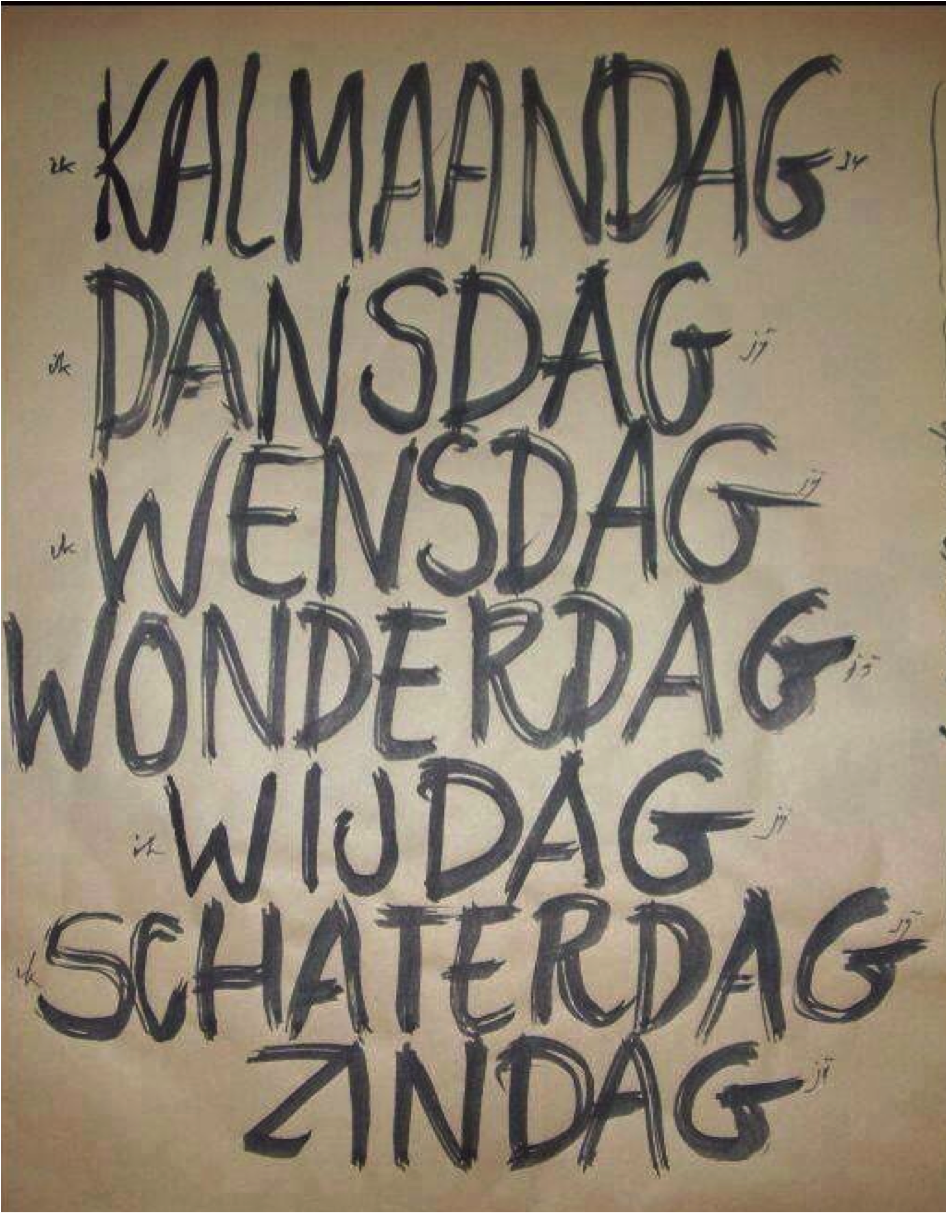 ik KALMAANDAG jij
ik DANSDAG jij
ik WENSDAG jij
WONDERDAG jij
ik WIJDAG jij
ik SCHATERDAG jij
ZINDAG jij